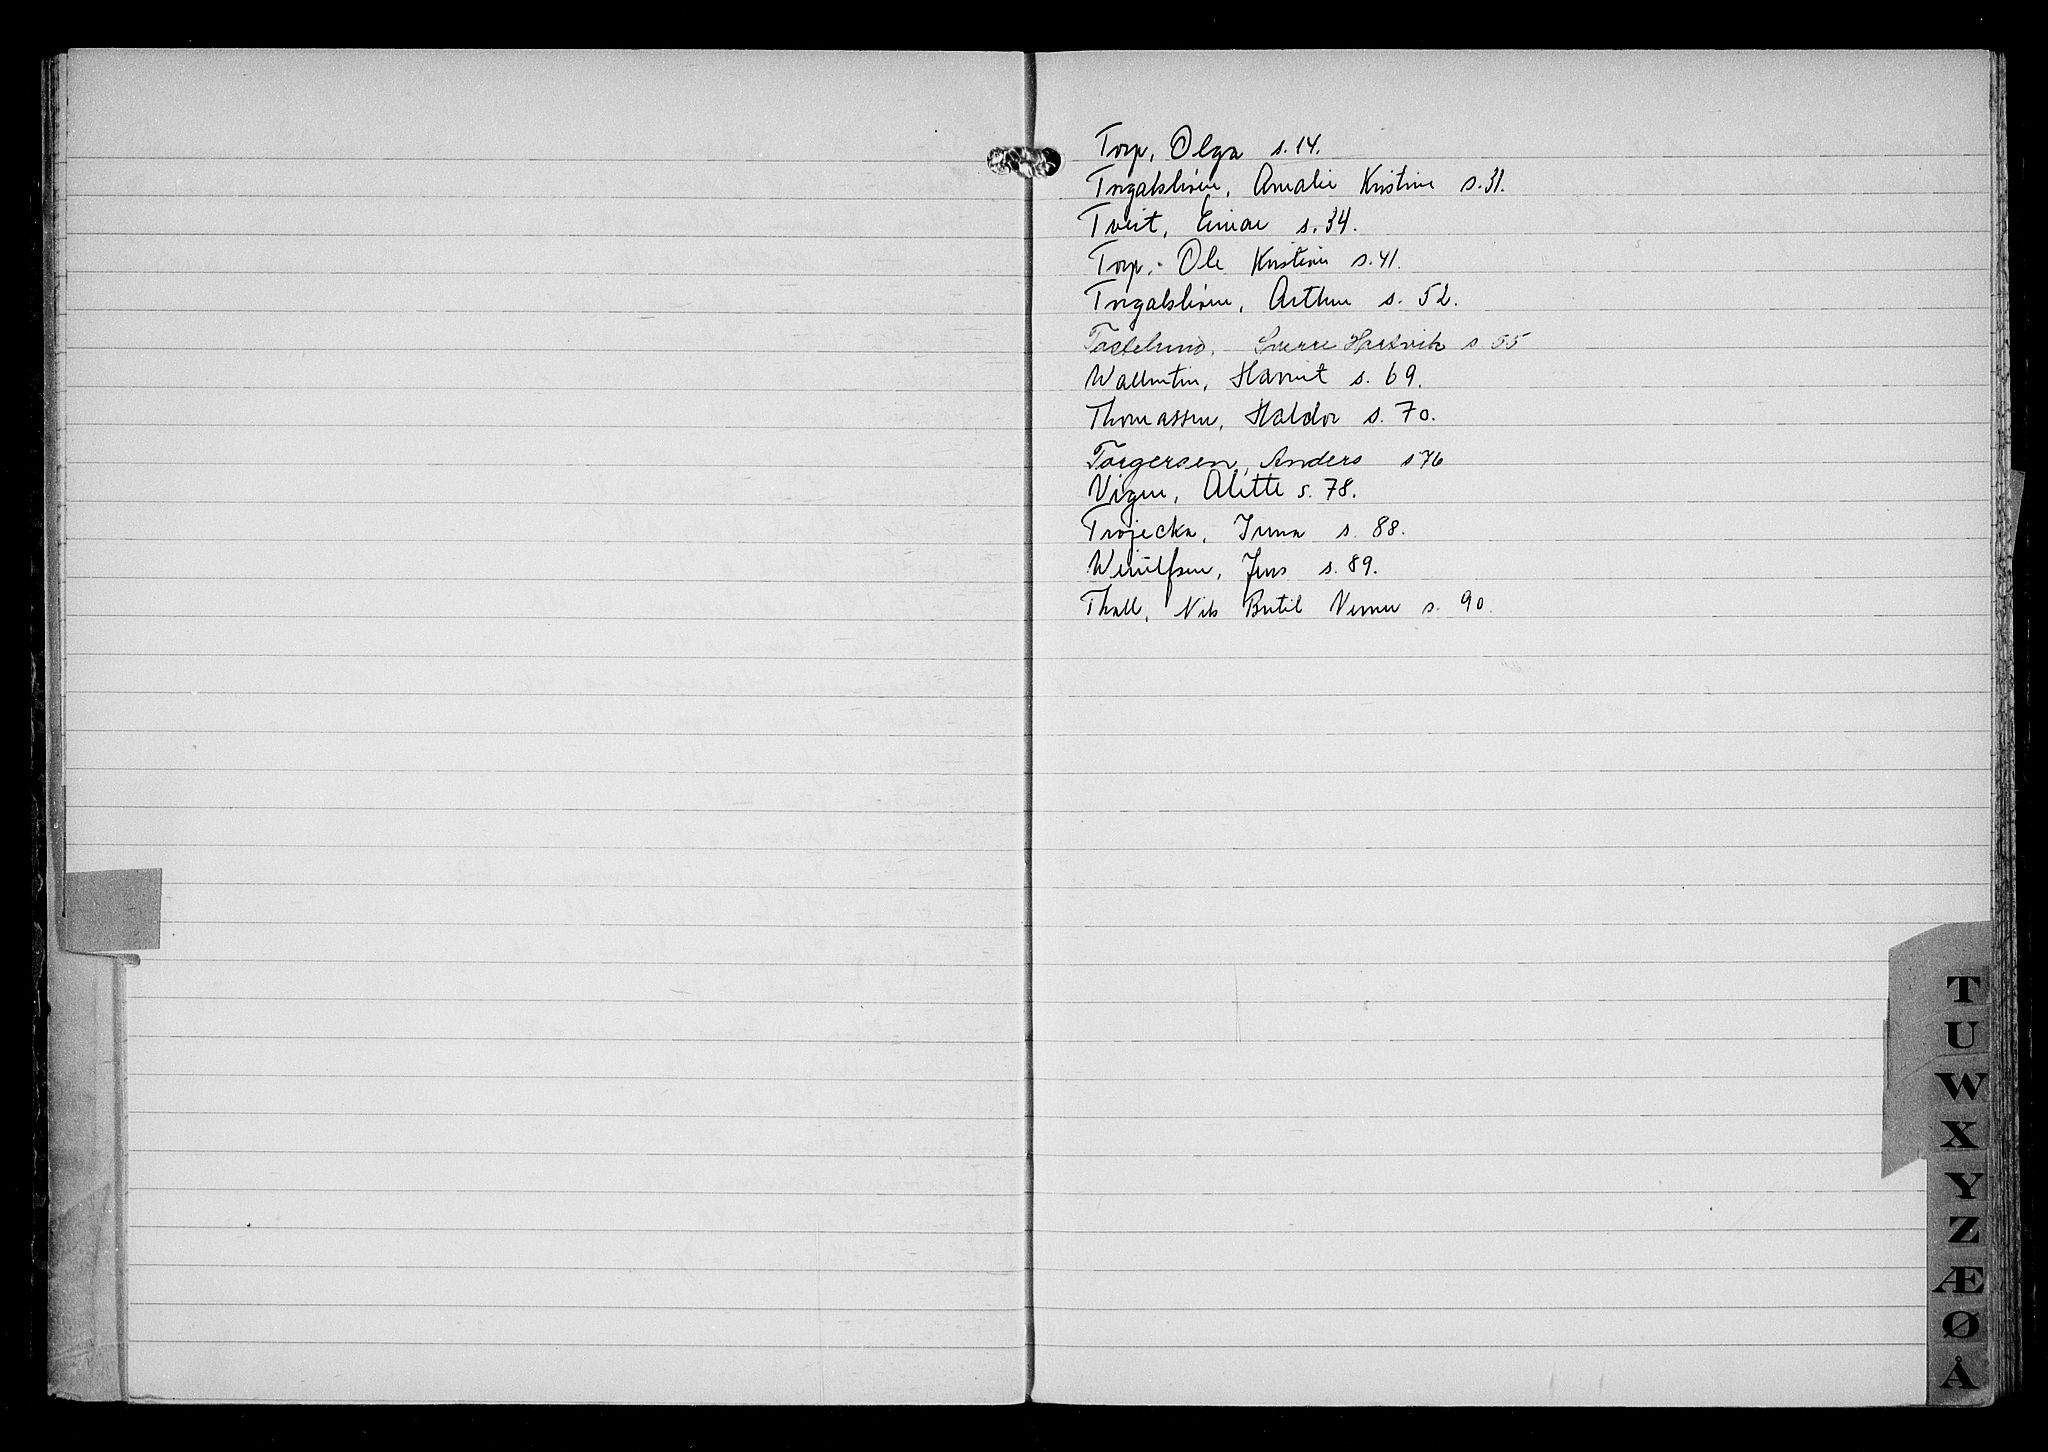 Torp, Olga s. 14.
Amalie Kristine s. 31.
Tveit, Einar s. 34.
Torp, Ole Kristian s. 41.
Arthur s. 52.
Sverre Hartvik s 55
Wallentin, Harriet s. 69.
Thomassen, Haldor s. 70.
Torgersen, Anders s 76
Vigen, Alette s. 78.
Trojecka, Irma s. 88.
Werulfsen, Jens s. 89.
Thall, Nils Bertil Verner s. 90.
T
U
W
X
Y
Z
Æ
Ø
Å